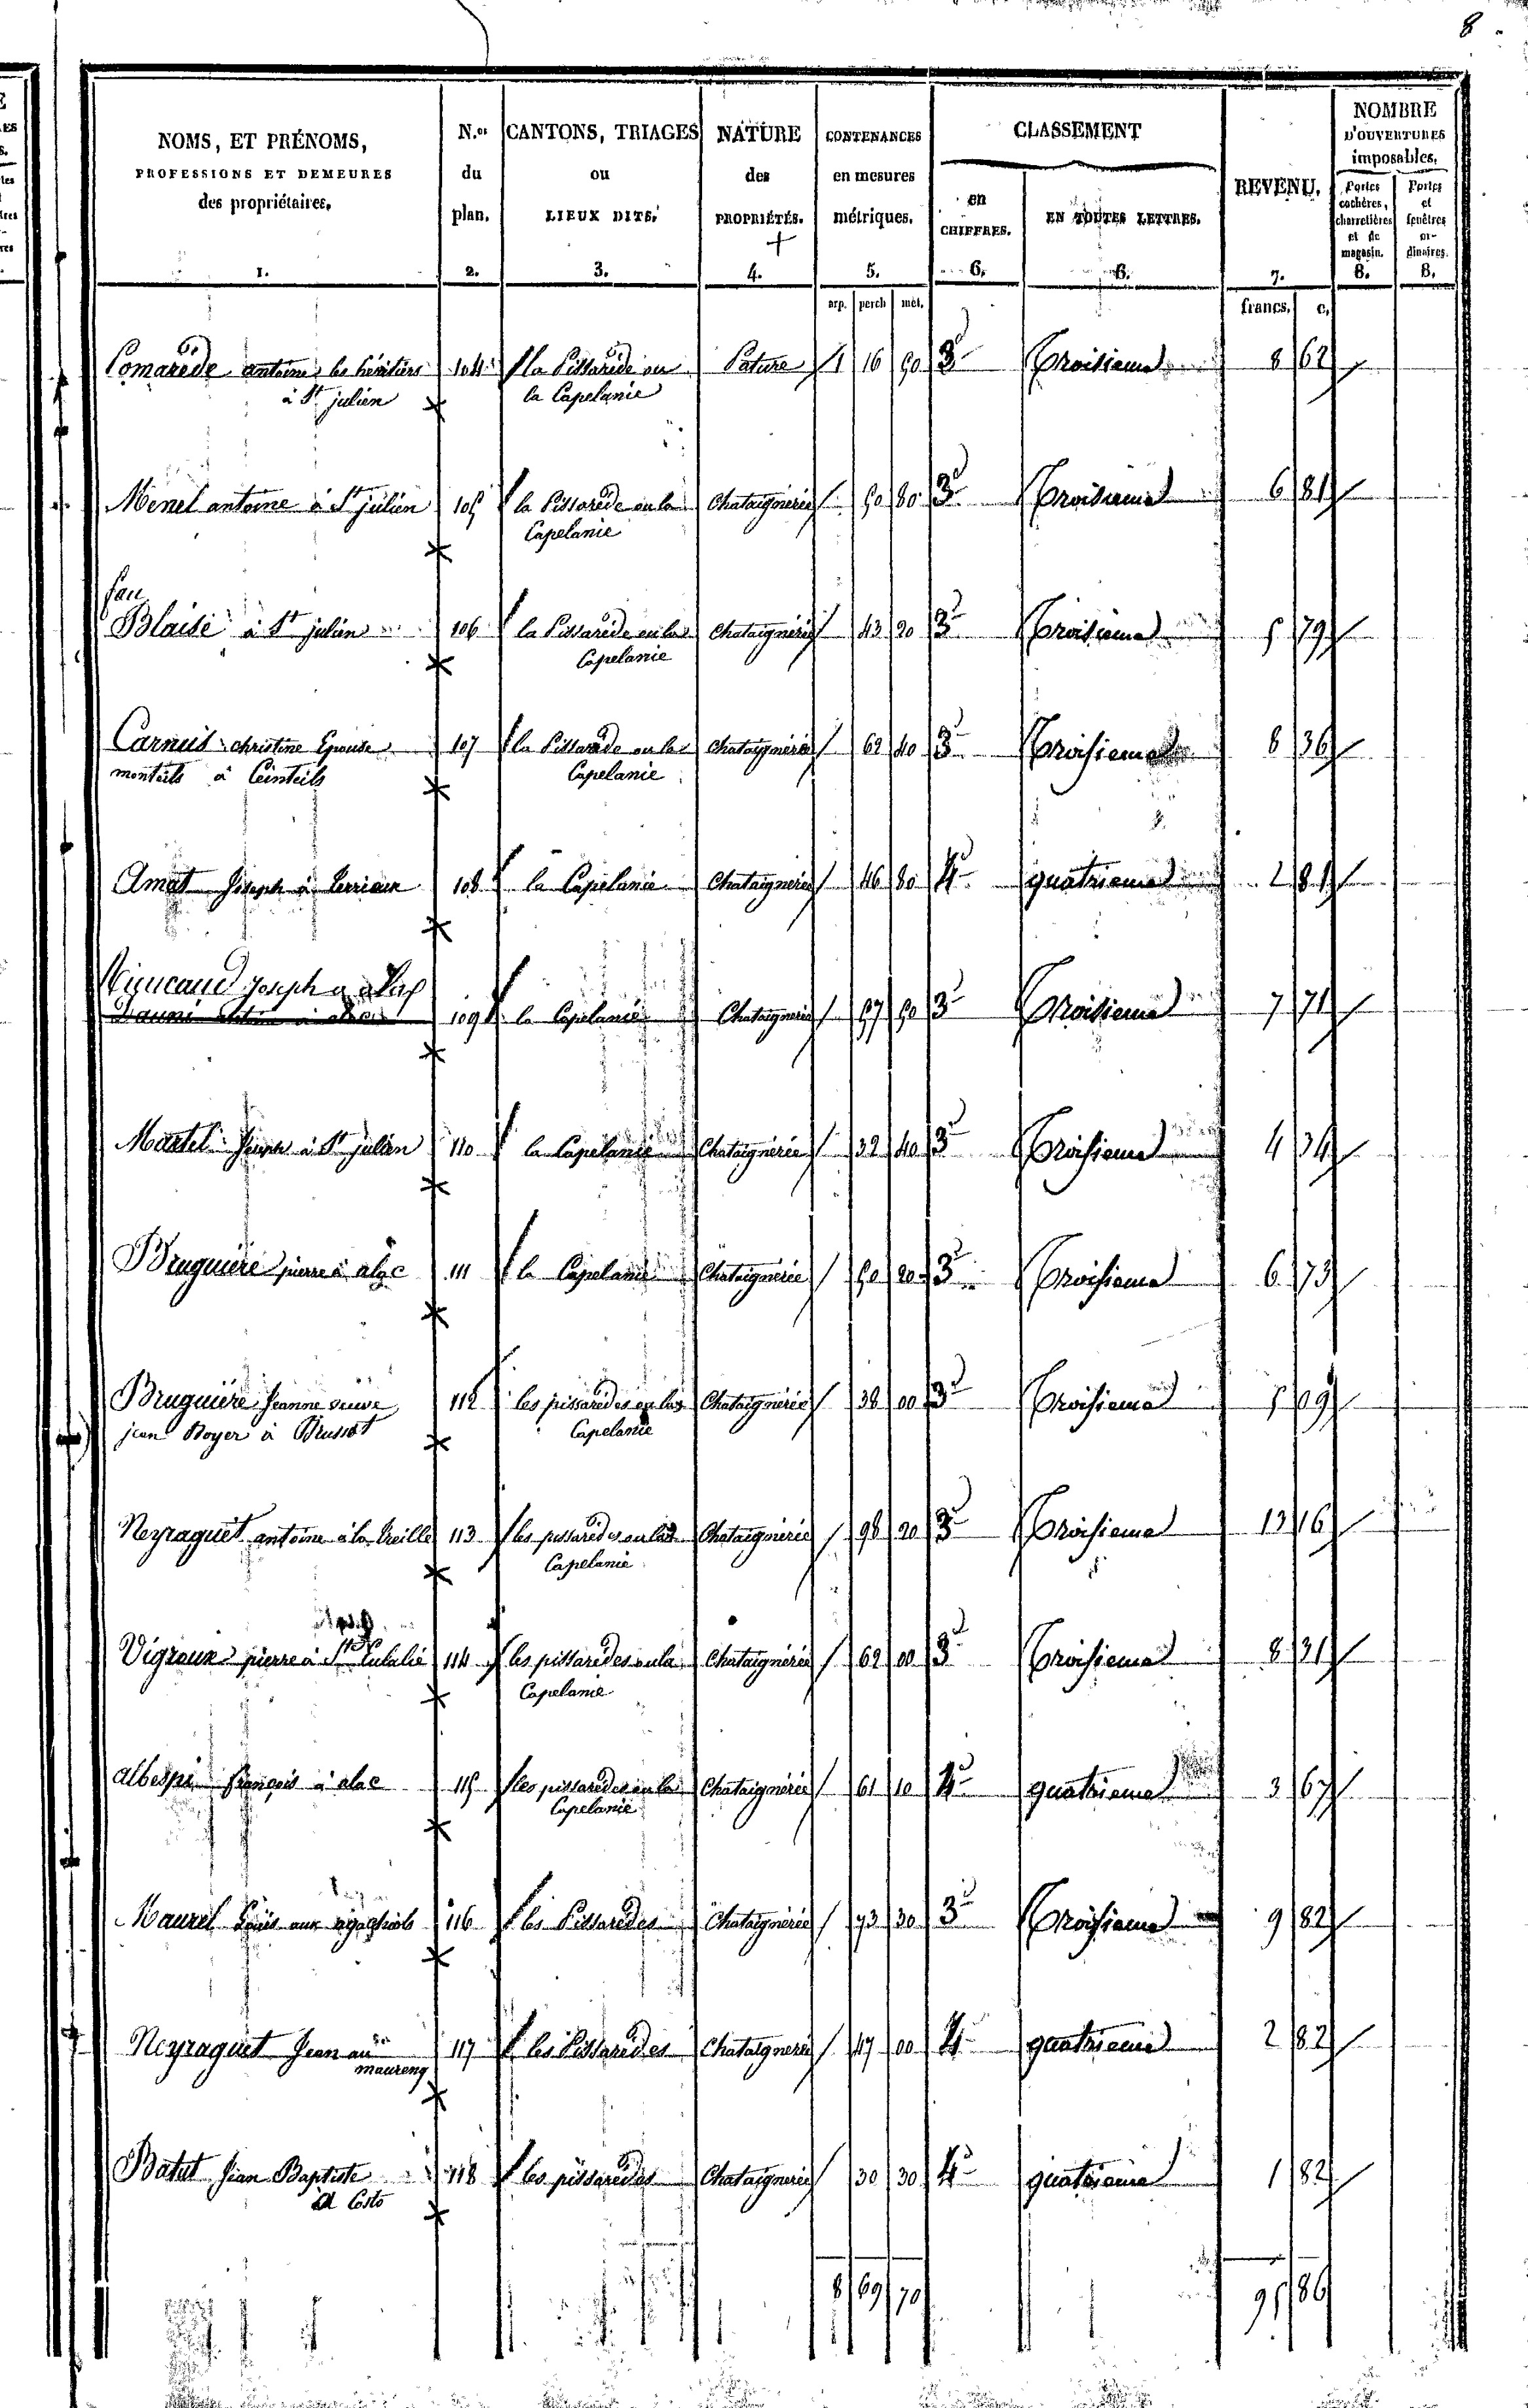 8
NOMS, ET PRÉNOMS, PROFESSIONS ET DEMEURES des propriétaires. 1.
N.os du plan. 2.
CANTONS, TRIAGES ou LIEUX DITS. 3.
NATURE des PROPRIÉTÉS. 4.
CONTENANCES en mesures métriques. 5.
CLASSEMENT
en CHIFFRES. 6.
EN TOUTES LETTRES. 6.
REVENU. 7.
NOMBRE D'OUVERTURES imposables.
Portes cochères, charretières et de magasin. 8.
Portes et fenêtres ordinaires. 8.
arp. perch mèt. francs. c.
Comarède antoine les héritiers 104 la Pissarède ou Pature 1 16 90 3e Troisieme 8 62
à St julien la Capelanie
Menel antoine à St julien 105 la Pissarède ou la Chataignerie 50 80 3e Troisieme 6 81
Capelanie
fau
Blaise à St julien 106 la Pissarède ou la Chataignérie 43 20 3e Troisieme 5 79
Capelanie
Carnus christine Epouse 107 la Pissarède ou la Chataignérie 62 40 3e Troisieme 8 36
monteils à Ceinteils Capelanie
Amat Joseph à 108 la Capelanie Chataignerie 46 80 4e quatrieme 2 81
Joseph a
109 la Capelanie Chataignerie 57 50 3e Troisieme 7 71
Martel Joseph à St julien 110 la Capelanie Chataignérie 32 40 3e Troisieme 4 34
Bruguière pierre à alac 111 la Capelanie Chataignérie 50 20 3e Troisieme 6 73
Bruguière Jeanne veuve 112 les pissarèdes ou la Chataignérie 38 00 3e Troisieme 5 09
jean Boyer à Brussot Capelanie
Neyraguet antoine à la treille 113 les pissarèdes ou la Chataignérie 98 20 3e Troisieme 13 16
Capelanie
Vigroux pierre à Ste Eulalie 114 les pissarèdes ou la Chataignérie 62 00 3e Troisieme 8 31
Capelanie
albespi françois à alac 115 les pissarèdes ou la Chataignérie 61 10 4e quatrieme 3 67
Capelanie
Maurel Louis aux 116 les Pissarèdes Chataignérie 73 30 3e Troisieme 9 82
Neyraguet Jean au 117 les Pissarèdes Chataignerie 47 00 4e quatrieme 2 82
maureng
Batut Jean Baptiste 118 les pissarèdes Chataignerie 30 30 4e quatrieme 1 82
8 69 70 95 86